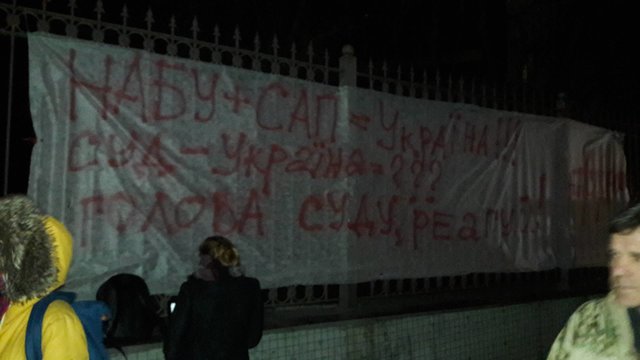 НАБУ+САП=УКРАЇНА!!!
СУД-УКРАЇНА=???
ГОЛОВА СУДУ, РЕАГУЙ!